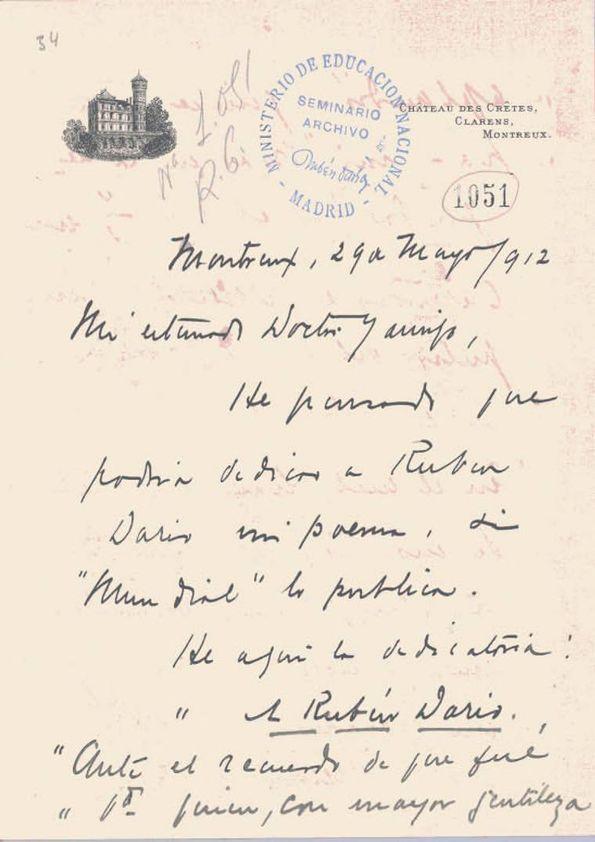 34
Nº 1.051
R.G.
MINISTERIO DE EDUCACION NACIONAL
- MADRID -
SEMINARIO
ARCHIVO
Rubén Darío
CHÂTEAU DES CRÊTES,
CLARENS,
MONTREUX.
1051
Montreux, 29 de Mayo/912
Mi estimado Doctor y amigo,
He pensado que
podría dedicar a Ruben
Dario mi poema, si
"Mundial" lo publica.
He aquí la dedicatoria:
" A Rubén Dario.
"Ante el recuerdo de que fué
" Vd. quien, con mayor gentileza